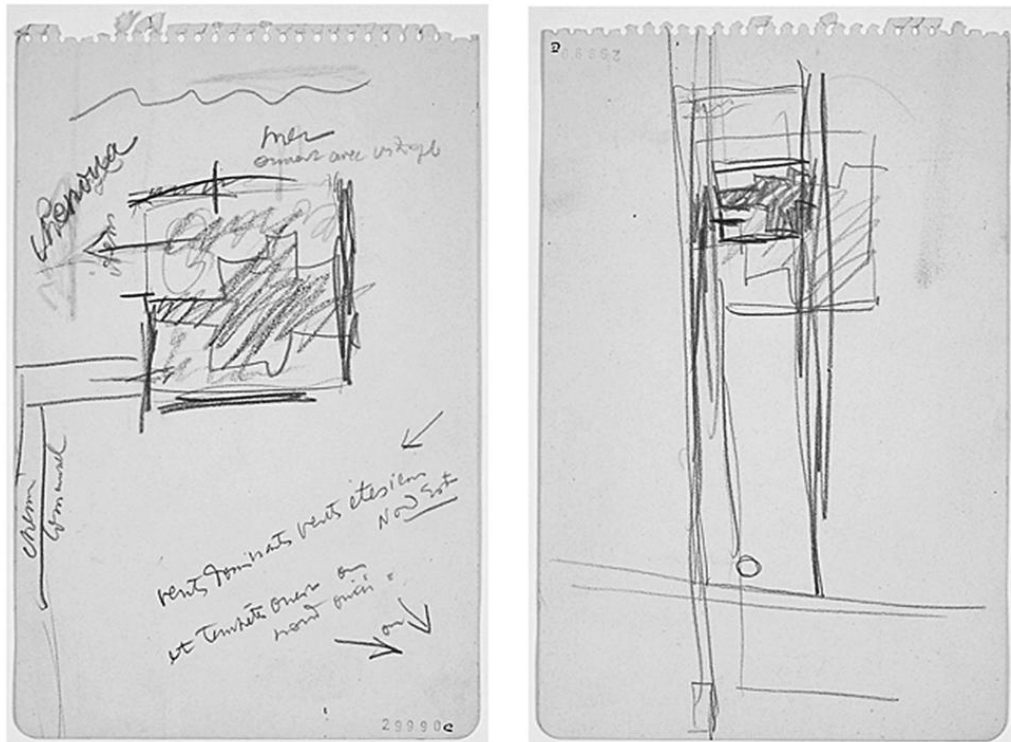 mer
ouvert avec vitrage
Chenoua
idem
chemin
communal
vents dominants vents étésiens
Nord Est
et tempêtes ouest ou
nord ouest
ou
29990c
D
29990